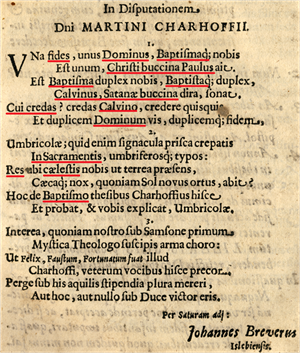 In Disputationem
Dni MARTINI CHARHOFFII.
1.
VNa fides, unus Dominus, Baptismaq; nobis
Est unum, Christi buccina Paulus ait.
Est Baptisma duplex nobis, Baptistaq; duplex,
Calvinus, Satanæ buccina dira, sonat.
Cui credas? credas Calvino, credere quisquis
Et duplicem Dominum vis, duplicemq; fidem.
2.
Umbricolæ; quid enim signacula prisca crepatis
In Sacramentis, umbriferosq; typos:
Res ubi cælestis nobis ut terrea præsens,
Cæcaq; nox, quoniam Sol novus ortus, abit?
Hoc de Baptismo thesibus Charhoffius hisce
Et probat, & vobis explicat, Umbricolæ.
3.
Interea, quoniam nostro sub Samsone primum
Mystica Theologo suscipis arma choro:
Ut Felix, Faustum, Fortunatum fuat illud
Charhoffi, veterum vocibus hisce precor.
Perge sub his aquilis stipendia plura mereri,
Aut hoc, aut nullo sub Duce victor eris.
Per Saturam adj:
Johannes Breverus
Islebiensis.